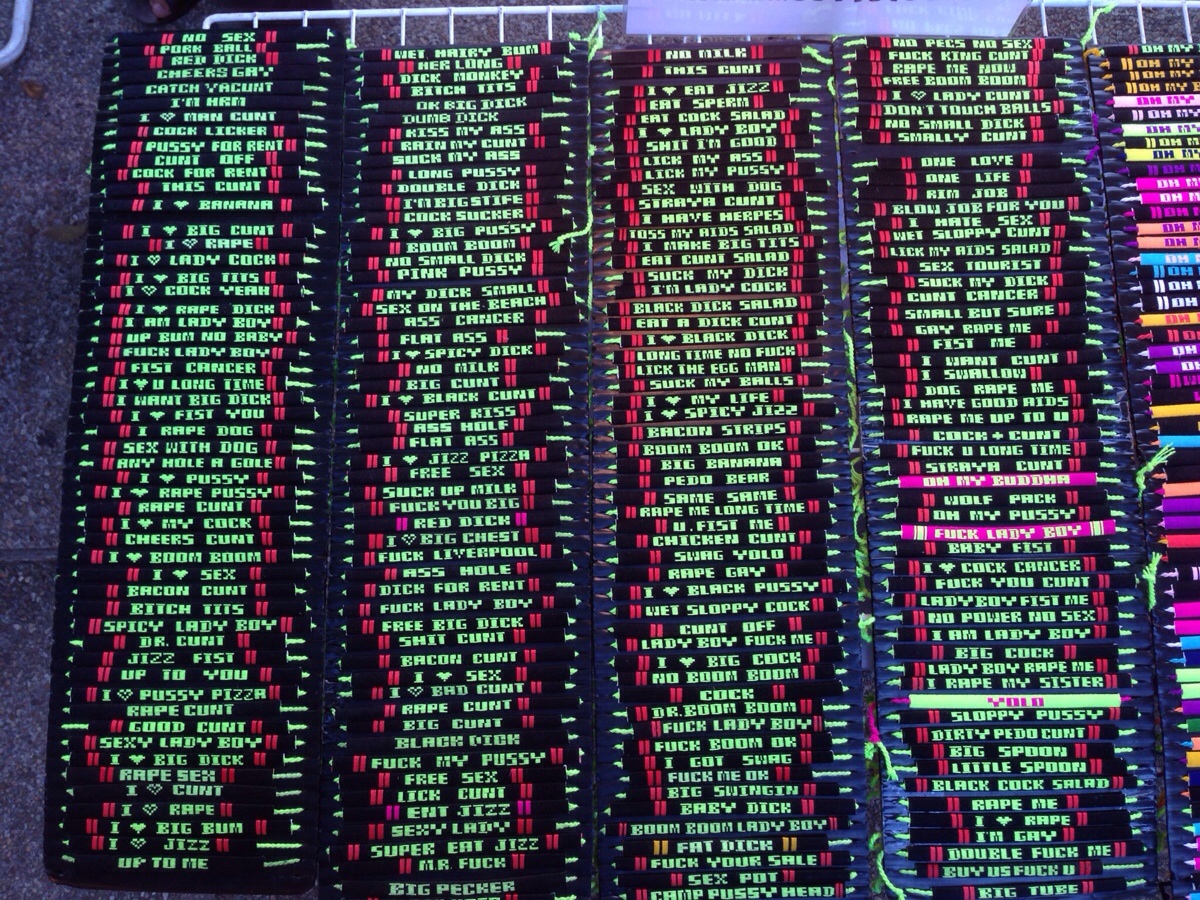 NO SEX
PORK BALL
RED DICK
CHEERS GAY
CATCH VACUNT
I'M HRM
I ♥ MAN CUNT
COCK LICKER
PUSSY FOR RENT
CUNT OFF
COCK FOR RENT
THIS CUNT
I ♥ BANANA
I ♥ BIG CUNT
I ♡ RAPE
I ♡ LADY COCK
I ♥ BIG TITS
I ♡ COCK YEAH
I ♥ RAPE DICK
I AM LADY BOY
UP BUM NO BABY
FUCK LADY BOY
FIST CANCER
I ♥ U LONG TIME
I WANT BIG DICK
I ♥ FIST YOU
I RAPE DOG
SEX WITH DOG
ANY HOLE A GOLE
I ♥ PUSSY
I ♥ RAPE PUSSY
RAPE CUNT
I ♥ MY COCK
CHEERS CUNT
I ♥ BOOM BOOM
I ♥ SEX
BACON CUNT
BITCH TITS
SPICY LADY BOY
DR. CUNT
JIZZ FIST
UP TO YOU
I ♡ PUSSY PIZZA
RAPE CUNT
GOOD CUNT
SEXY LADY BOY
I ♥ BIG DICK
RAPE SEX
I ♡ CUNT
I ♡ RAPE
I ♥ BIG BUM
I ♡ JIZZ
UP TO ME
WET HAIRY BUM
HER LONG
DICK MONKEY
BITCH TITS
OK BIG DICK
DUMB DICK
KISS MY ASS
RAIN MY CUNT
SUCK MY ASS
LONG PUSSY
DOUBLE DICK
I'M BIG STIFE
COCK SUCKER
I ♥ BIG PUSSY
BOOM BOOM
NO SMALL DICK
PINK PUSSY
MY DICK SMALL
SEX ON THE BEACH
ASS CANCER
FLAT ASS
I ♥ SPICY DICK
NO MILK
BIG CUNT
I ♥ BLACK CUNT
SUPER KISS
ASS HOLF
FLAT ASS
I ♥ JIZZ PIZZA
FREE SEX
SUCK UP MILK
FUCK YOU BIG
RED DICK
I ♡ BIG CHEST
FUCK LIVERPOOL
ASS HOLE
DICK FOR RENT
FUCK LADY BOY
FREE BIG DICK
SHIT CUNT
BACON CUNT
I ♥ SEX
I ♡ BAD CUNT
RAPE CUNT
BIG CUNT
BLACK DICK
FUCK MY PUSSY
FREE SEX
LICK CUNT
ENT JIZZ
SEXY LADY
SUPER EAT JIZZ
MR. FUCK
BIG PECKER
NO MILK
THIS CUNT
I ♥ EAT JIZZ
EAT SPERM
EAT COCK SALAD
I ♥ LADY BOY
SHIT I'M GOOD
LICK MY ASS
LICK MY PUSSY
SEX WITH DOG
STRAYA CUNT
I HAVE HERPES
TOSS MY AIDS SALAD
I MAKE BIG TITS
EAT CUNT SALAD
SUCK MY DICK
I'M LADY COCK
BLACK DICK SALAD
EAT A DICK CUNT
I ♥ BLACK DICK
LONG TIME NO FUCK
LICK THE EGG MAN
SUCK MY BALLS
I ♥ MY LIFE
I ♥ SPICY JIZZ
BACON STRIPS
BOOM BOOM OK
BIG BANANA
PEDO BEAR
SAME SAME
RAPE ME LONG TIME
U. FIST ME
CHICKEN CUNT
SWAG YOLO
RAPE GAY
I ♥ BLACK PUSSY
WET SLOPPY COCK
CUNT OFF
LADY BOY FUCK ME
I ♥ BIG COCK
NO BOOM BOOM
COCK
DR. BOOM BOOM
FUCK LADY BOY
FUCK BOOM OK
I GOT SWAG
FUCK ME OK
BIG SWINGIN
BABY DICK
BOOM BOOM LADY BOY
FAT DICK
FUCK YOUR SALE
SEX POT
CAMP PUSSY HEAD
NO PECS NO SEX
FUCK KING CUNT
RAPE ME NOW
FREE BOOM BOOM
I ♥ LADY CUNT
DON'T TOUCH BALLS
NO SMALL DICK
SMALLY CUNT
ONE LOVE
ONE LIFE
RIM JOB
BLOW JOB FOR YOU
I HATE SEX
WET SLOPPY CUNT
LICK MY AIDS SALAD
SEX TOURIST
SUCK MY DICK
CUNT CANCER
SMALL BUT SURE
GAY RAPE ME
FIST ME
I WANT CUNT
I SWALLOW
DOG RAPE ME
I HAVE GOOD AIDS
RAPE ME UP TO U
COCK + CUNT
FUCK U LONG TIME
STRAYA CUNT
OH MY BUDDHA
WOLF PACK
OH MY PUSSY
FUCK LADY BOY
BABY FIST
I ♥ COCK CANCER
FUCK YOU CUNT
LADYBOY FIST ME
NO POWER NO SEX
I AM LADY BOY
BIG COCK
LADY BOY RAPE ME
I RAPE MY SISTER
YOLO
SLOPPY PUSSY
DIRTY PEDO CUNT
BIG SPOON
LITTLE SPOON
BLACK COCK SALAD
RAPE ME
I ♥ RAPE
I'M GAY
DOUBLE FUCK ME
BUY US FUCK U
BIG TUBE
OH MY
OH MY
OH MY
OH MY
OH MY
OH MY